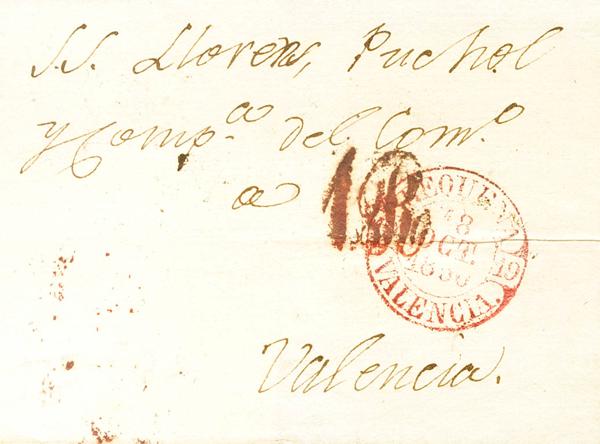 S.S. Llorens, Puchol
y Comp.ª del Com.º
a
REQUENA
18
OCT.
VALENCIA.
Valencia.